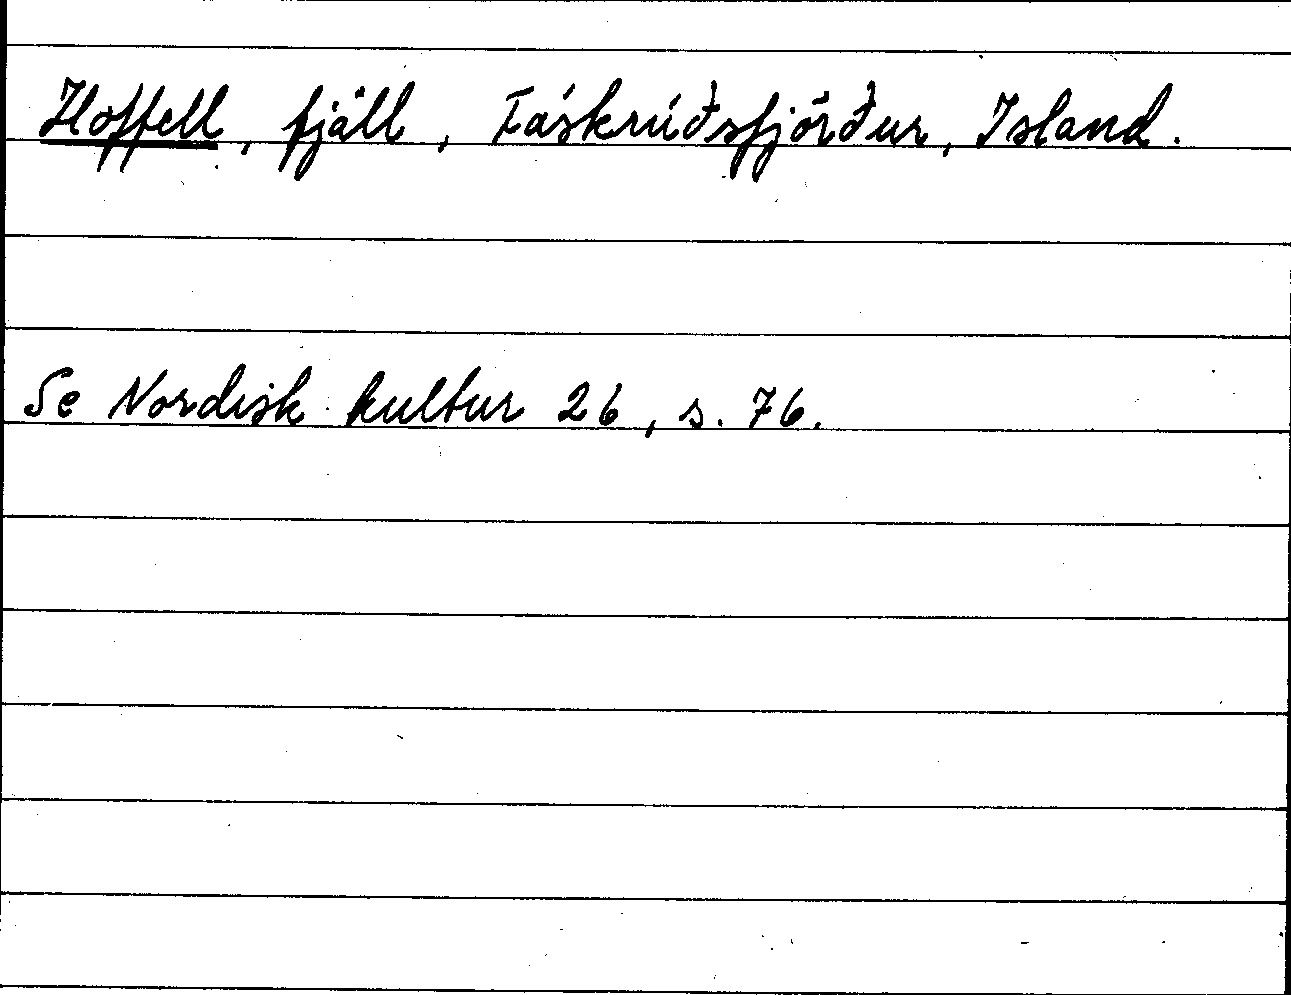 Hoffell, fjäll, Fáskrúðsfjörður, Island.
Se Nordisk kultur 26, s. 76.